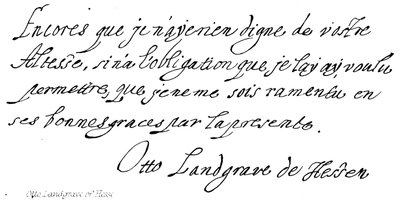 Encores que je n'ay rien digne de vostre
Altesse, si n'a l'obligation que je lay ay voulu
permettre, que je ne me sois ramentu en
ses bonnes graces par la presente.
Otto Landgrave de Hessen
Otto Landgrave of Hesse